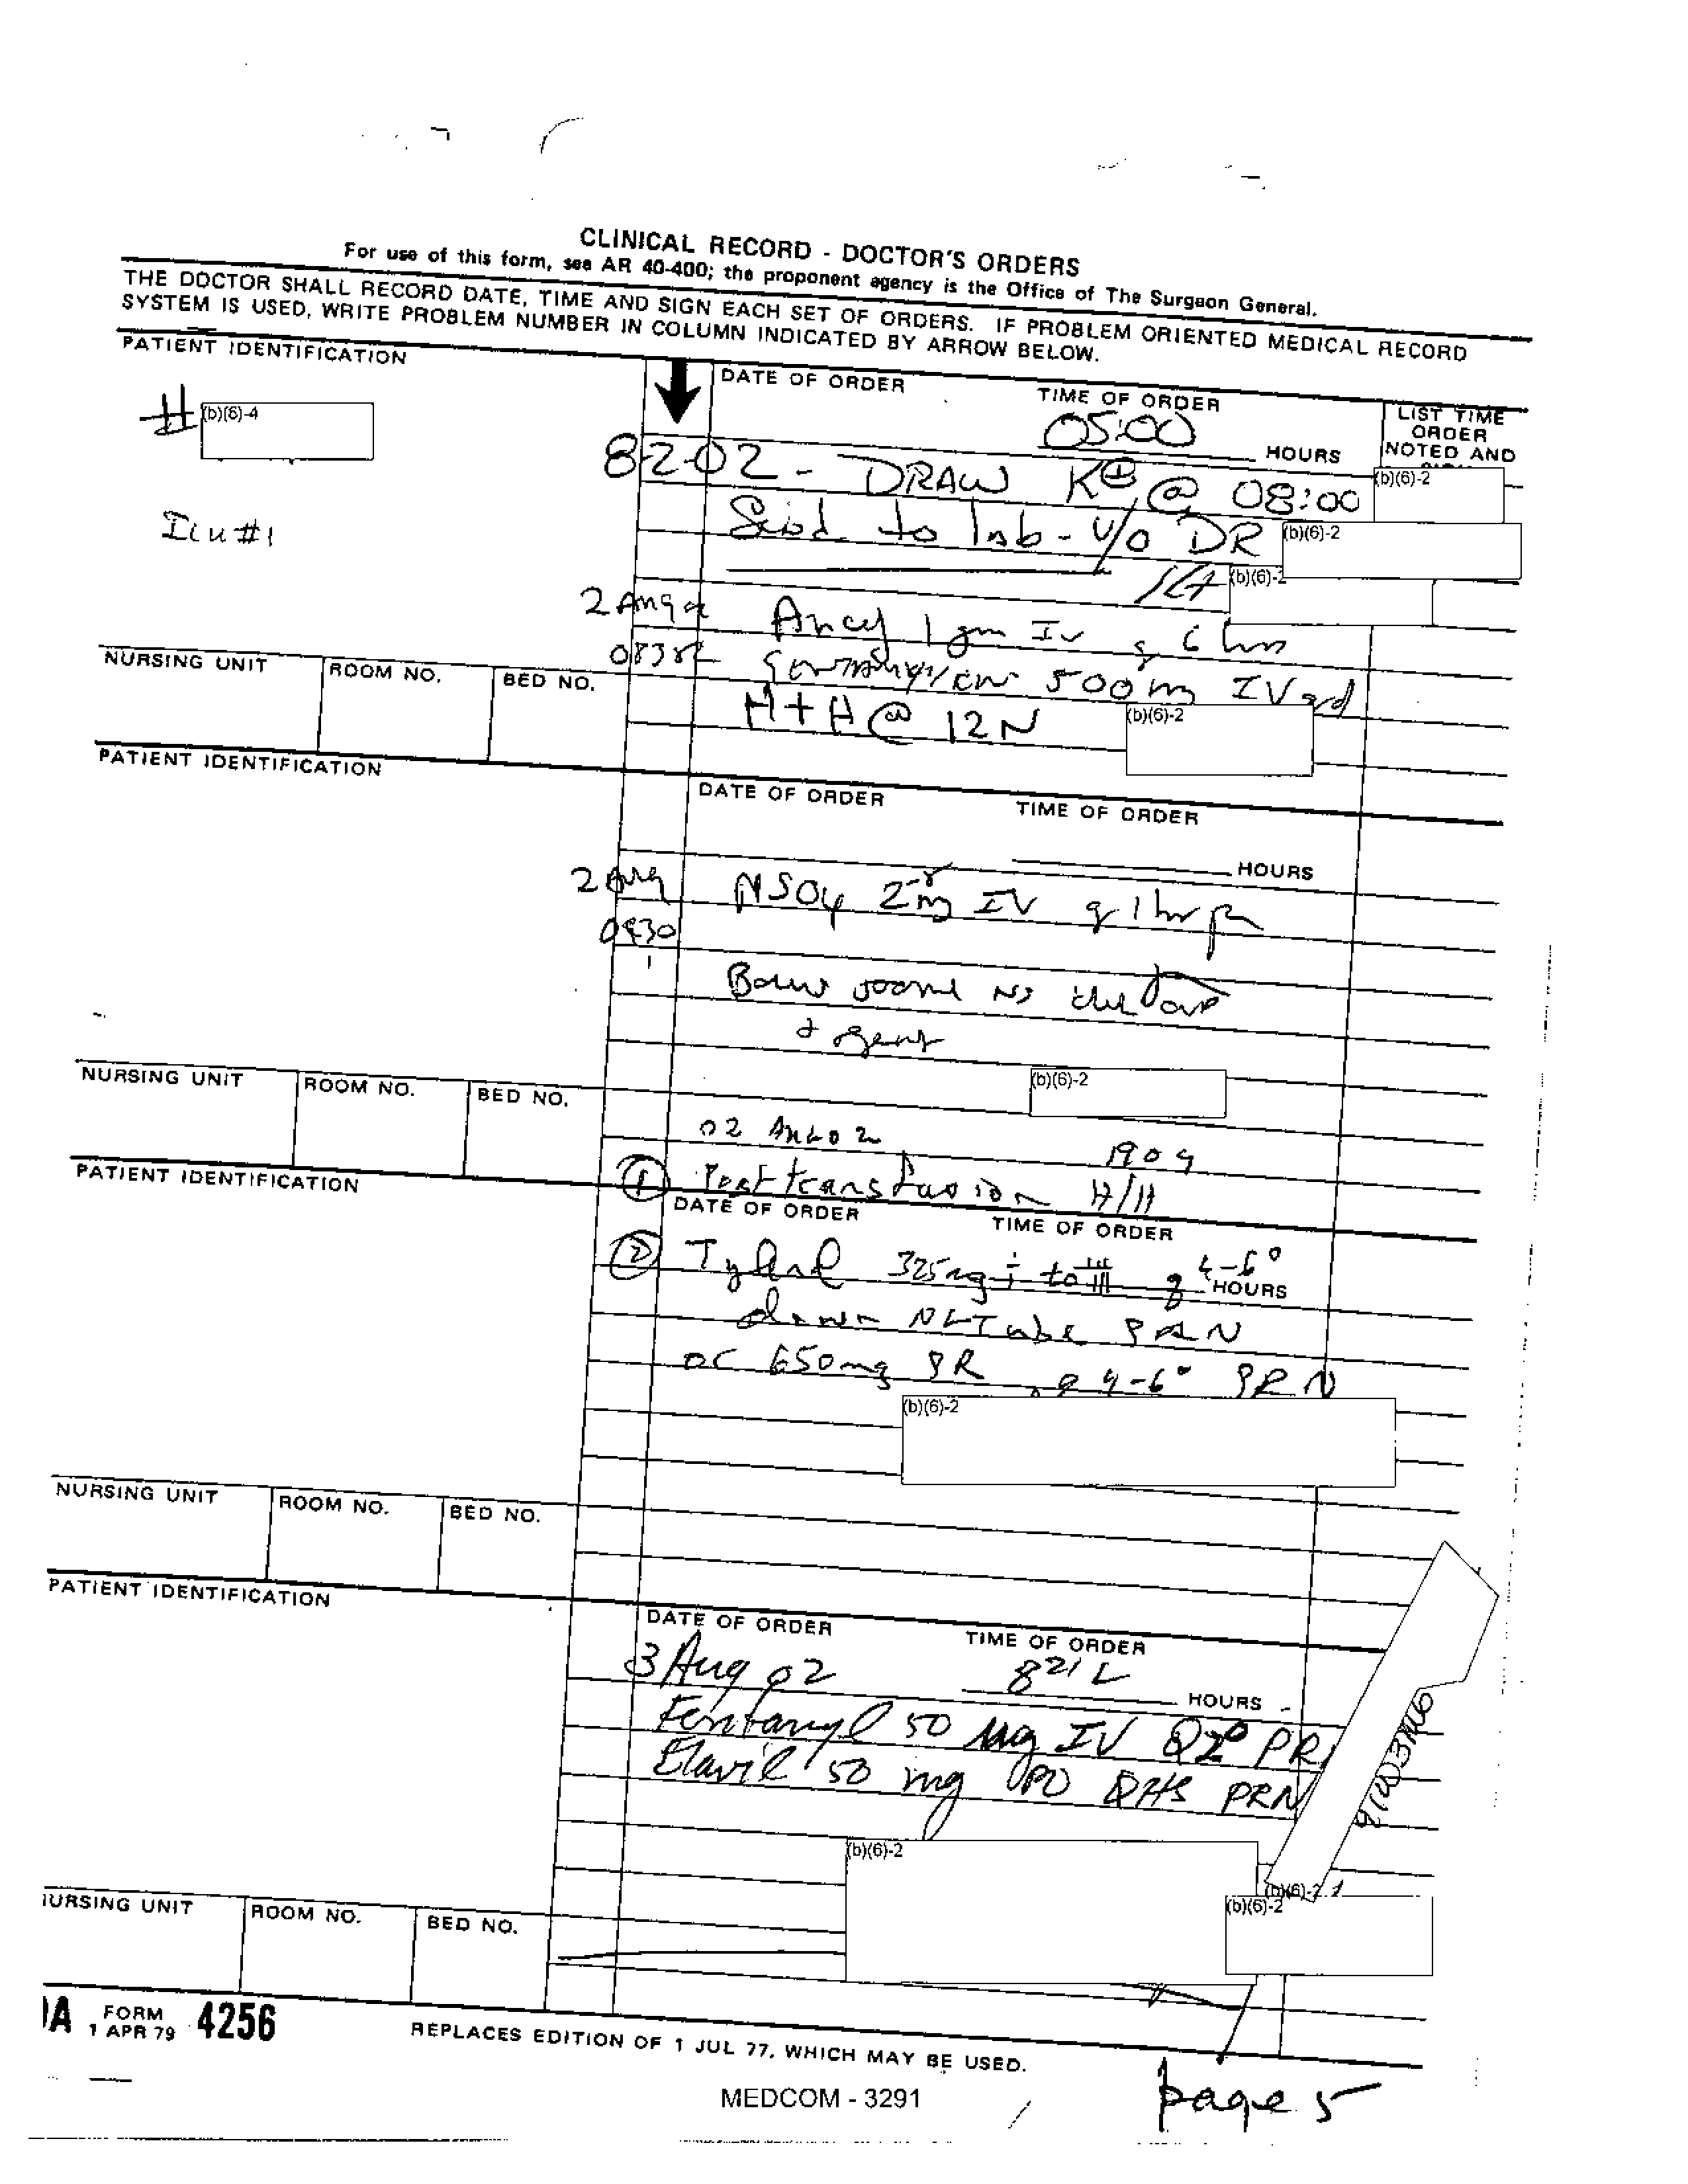 CLINICAL RECORD - DOCTOR'S ORDERS
For use of this form, see AR 40-400; the proponent agency is the Office of The Surgeon General.
THE DOCTOR SHALL RECORD DATE, TIME AND SIGN EACH SET OF ORDERS. IF PROBLEM ORIENTED MEDICAL RECORD
SYSTEM IS USED, WRITE PROBLEM NUMBER IN COLUMN INDICATED BY ARROW BELOW.
PATIENT IDENTIFICATION
DATE OF ORDER
TIME OF ORDER
LIST TIME
ORDER
NOTED AND
# (b)(6)-4
05:00 HOURS
8-2-02 - DRAW K⊕ @ 08:00 (b)(6)-2
Send to lab - V/O DR (b)(6)-2
(b)(6)-2
Icu #1
2 Aug Ancef 1 gm IV q 6 hrs
500 mg IV qd
H+H @ 12N (b)(6)-2
NURSING UNIT ROOM NO. BED NO.
PATIENT IDENTIFICATION
DATE OF ORDER TIME OF ORDER
HOURS
2 Aug MSO4 2 mg IV q 1 hr
0930
NS
(b)(6)-2
NURSING UNIT ROOM NO. BED NO.
02 Aug 02 1909
① Post transfusion H/H
PATIENT IDENTIFICATION
DATE OF ORDER TIME OF ORDER
② Tylenol 325mg i to iii q 4-6°
HOURS
down NG Tube PRN
or 650mg PR q 4-6° PRN
(b)(6)-2
NURSING UNIT ROOM NO. BED NO.
PATIENT IDENTIFICATION
DATE OF ORDER TIME OF ORDER
3 Aug 02 821 L HOURS
Fentanyl 50 Mg IV Q2° PR
Elavil 50 mg PO QHS PRN
(b)(6)-2
(b)(6)-2
(b)(6)-2
NURSING UNIT ROOM NO. BED NO.
DA FORM 4256
1 APR 79
REPLACES EDITION OF 1 JUL 77, WHICH MAY BE USED.
MEDCOM - 3291
page 5